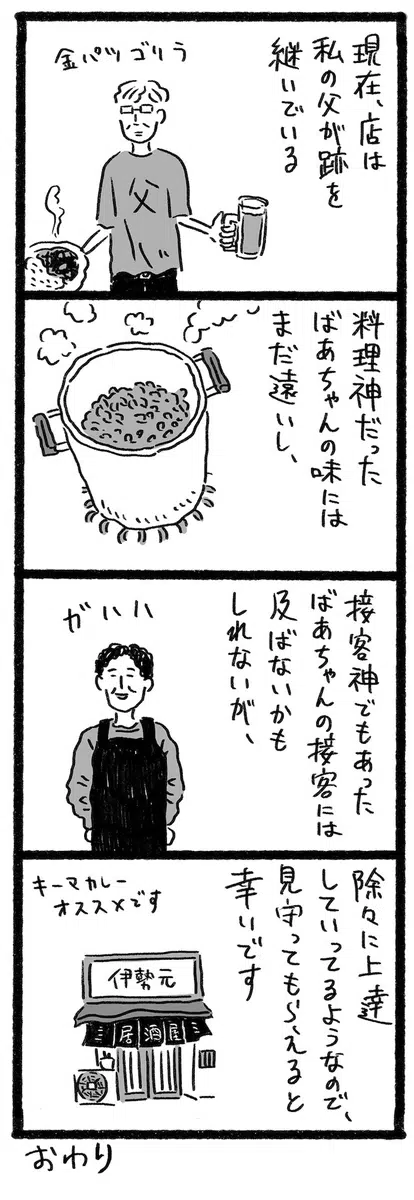 現在、店は
私の父が跡を
継いでいる
金パツゴリラ
父
料理神だった
ばあちゃんの味には
まだ遠いし、
接客神でもあった
ばあちゃんの接客には
及ばないかも
しれないが、
ガハハハ
除々に上達
していってるようなので、
見守ってもらえると
幸いです
キーマカレー
オススメです
伊勢元
居酒屋
おわり